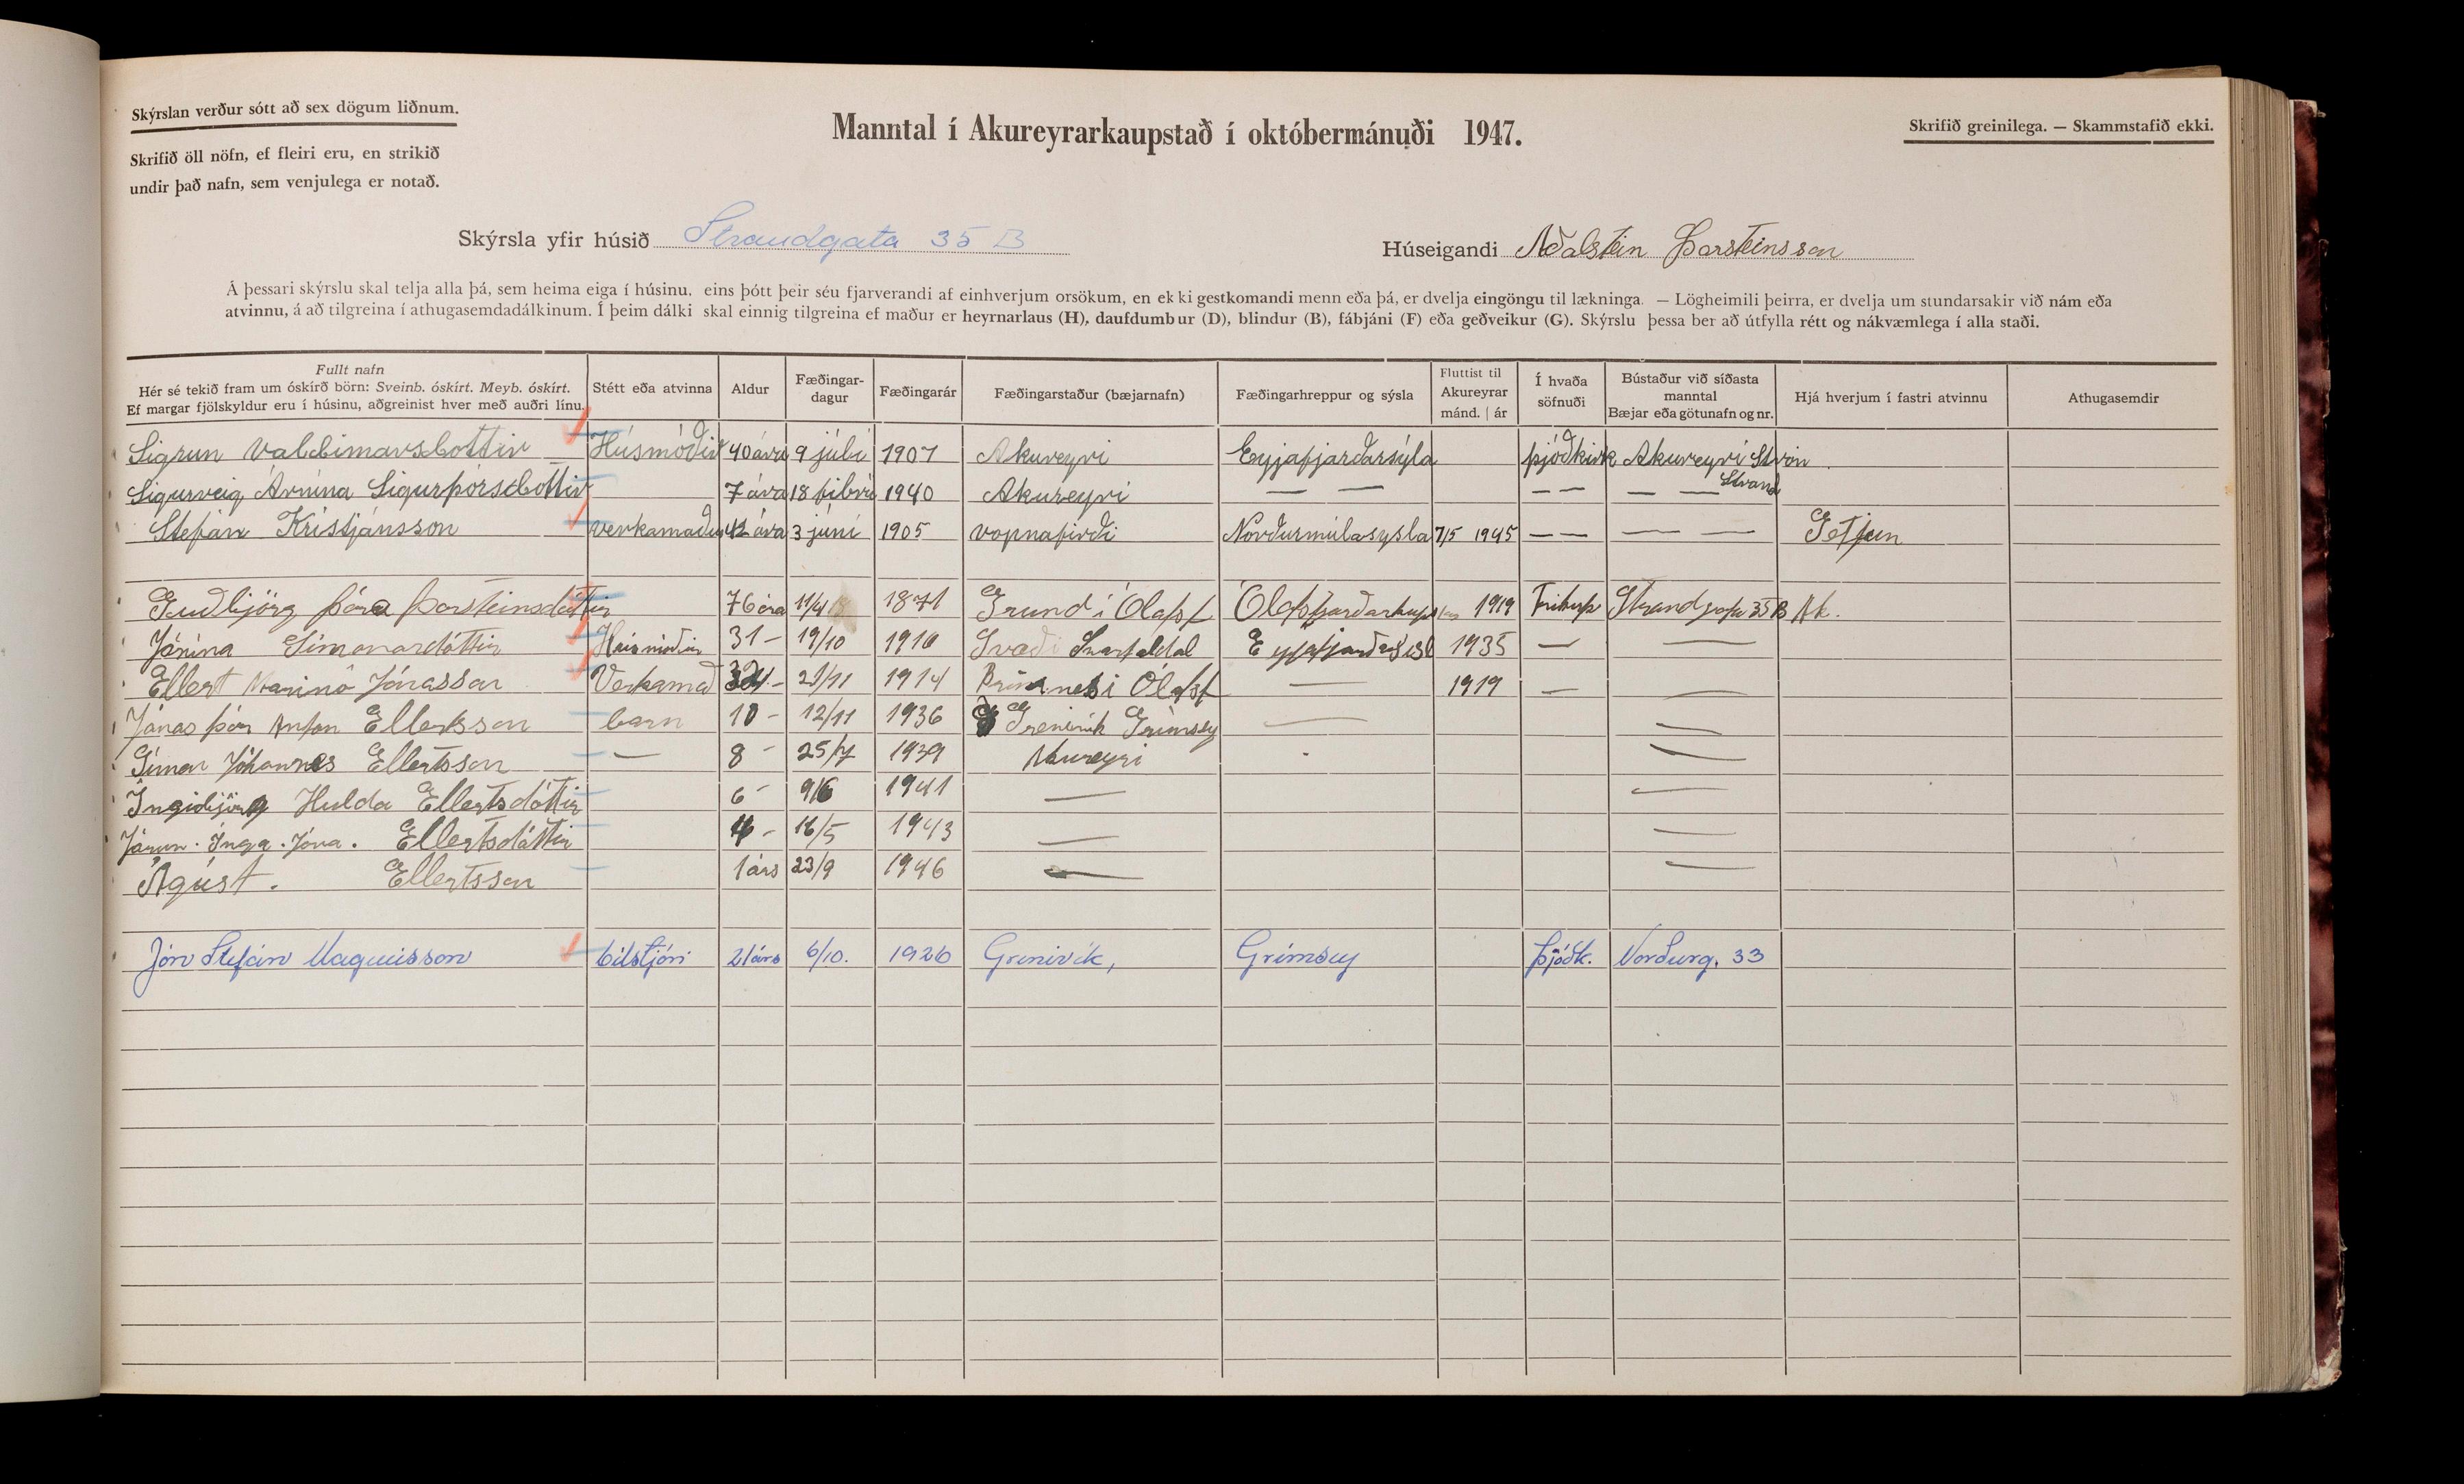 Skýrslan verður sótt að sex dögum liðnum.
Skrifið öll nöfn, ef fleiri eru, en strikið
undir það nafn, sem venjulega er notað.
Manntal í Akureyrarkaupstað í októbermánuði 1947.
Skrifið greinilega. — Skammstafið ekki.
Skýrsla yfir húsið Strandgata 35 B
Húseigandi Aðalstein Þorsteinsson
Á þessari skýrslu skal telja alla þá, sem heima eiga í húsinu. eins þótt þeir séu fjarverandi af einhverjum orsökum, en ekki gestkomandi menn eða þá, er dvelja eingöngu til lækninga. — Lögheimili þeirra, er dvelja um stundarsakir við nám eða
atvinnu, á að tilgreina í athugasemdadálkinum. Í þeim dálki skal einnig tilgreina ef maður er heyrnarlaus (H), daufdumbur (D), blindur (B), fábjáni (F) eða geðveikur (G). Skýrslu þessa ber að útfylla rétt og nákvæmlega í alla staði.
Fullt nafn
Hér sé tekið fram um óskírð börn: Sveinb. óskírt. Meyb. óskírt.
Ef margar fjölskyldur eru í húsinu, aðgreinist hver með auðri línu.
Stétt eða atvinna
Aldur
Fæðingar-
dagur
Fæðingarár
Fæðingarstaður (bæjarnafn)
Fæðingarhreppur og sýsla
Fluttist til
Akureyrar
mánd. | ár
Í hvaða
söfnuði
Bústaður við síðasta
manntal
Bæjar eða götunafn og nr.
Hjá hverjum í fastri atvinnu
Athugasemdir
Sigrun Valdimarsdottir Húsmóðir 40 ára 9 júlí 1907 Akureyri Eyjafjarðarsýla þjóðkirk Akureyri
Sigurveig Árnína Sigurþórsdottir 7 ára 18 1940 Akureyri — — — — — — Strand
Stefán Kristjánsson verkamaður 42 ára 3 júní 1905 vopnafirði Norðurmúlasysla 7/5 1945 — — — — Gefjun
Guðbjörg Þóra Þorsteinsdóttir 76 ára 11/4 1871 Grund í Ólafsf 1919 Strandgata 35 B Ak.
Jónína Símonardóttir Húsmóðir 31 - 19/10 1916 Svartaldal 1935 — —
Ellert Marinó Jónasson Verkamað 21/11 1914 Ólafsf — 1919 — —
Jónas Þór Anton Ellertsson barn 10 - 12/11 1936 Grenivík Grímsey — —
Símon Jóhannes Ellertsson — 8 - 25/7 1939 Akureyri —
Ingibjörg Hulda Ellertsdóttir 6 - 9/6 1941 — —
Jórun. Inga. Jóna. Ellertsdóttir 4 - 16/5 1943 — —
Ágúst. Ellertsson 1 árs 23/9 1946 — —
Jón Stefán Magnússon bílstjóri 21 árs 6/10. 1926 Grenivík, Grímsey Þjóðk. Norðurg. 33